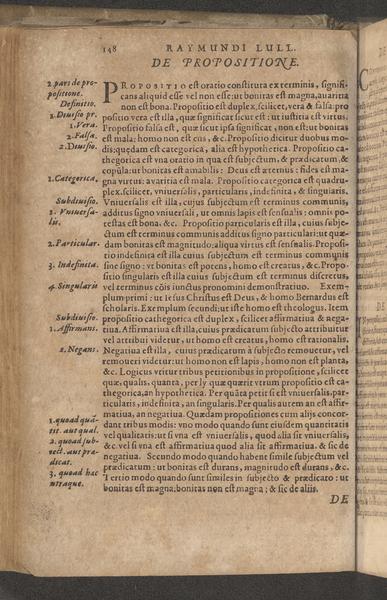 148 RAYMUNDI LULL.
DE PROPOSITIONE.
2. pars de pro-
positione.
Definitio.
2. Diuisio pr.
1. Vera.
2. Falsa.
2. Diuisio.
1. Categorica,
Subdiuisio.
1. Vniuersa-
lis.
2. Particular.
3. Indefinita.
4. Singularis
Subdiuisio.
1. Affirmans.
2. Negans.
1. quoad quã-
tit. aut qual.
2. quoad sub-
iect. aut præ-
dicat.
3. quoad hæc
vtraque.
PROPOSITIO est oratio constituta ex terminis, signifi-
cans aliquid esse vel non esse: ut bonitas est magna, auaritia
non est bona. Propositio est duplex, scilicet, vera & falsa: pro
positio vera est illa, quæ significat sicut est: ut iustitia est virtus.
Propositio falsa est, quæ sicut ipsa significat, non est: ut bonitas
est mala: homo non est ens, &c. Propositio dicitur duobus mo-
dis: quędam est categorica, alia est hypothetica. Propositio ca-
thegorica est vna oratio in qua est subjectum, & prædicatum, &
copũla: ut bonitas est amabilis: Deus est æternus: fides est ma-
gna virtus: avaritia est mala. Propositio categorica est quadru-
plex, scilicet, vniuersalis, particularis, indefinita, & singularis.
Vniuersalis est illa, cujus subjectum est terminus communis,
additus signo vniuersali, ut omnis lapis est sensualis: omnis po-
testas est bona. &c. Propositio particularis est illa, cuius subje-
ctum est terminus communis additus signo particulari: ut quæ-
dam bonitas est magnitudo: aliqua virtus est sensualis. Proposi-
tio indefinita est illa cuius subjectum est terminus communis
sine signo: vt bonitas est potens, homo est creatus, & c. Propo-
sitio singularis est illa cuius subjectum est terminus discretus,
vel terminus cõis iunctus pronomini demonstratiuo. Exem-
plum primi: ut Iesus Christus est Deus, & homo Bernardus est
scholaris. Exemplum secundi: ut iste homo est theologus. Item
propositio cathegorica est duplex, scilicet affirmatiua & nega-
tiua. Affirmatiua est illa, cuius prædicatum subjecto attribuitur
vel attribui videtur, ut homo est creatus, homo est rationalis.
Negatiua est illa, cuius prædicatum à subjecto remouetur, vel
remoueri videtur: ut homo non est lapis, homo non est planta,
&c. Logicus vtitur tribus petitionibus in propositione, scilicet
quæ, qualis, quanta, per ly quæ quærit vtrum propositio est ca-
thegorica, an hypothetica. Per quãta petit si est vniuersalis, par-
ticularis, indefinita, an singularis. Per qualis autem an est affir-
matiua, an negatiua. Quædam propositiones cum alijs concor-
dant tribus modis: vno modo quando sunt eiusdem quantitatis
vel qualitatis: ut si vna est vniuersalis, quod alia sit vniuersalis,
&c. vel si vna est affirmatiua quod alia sit affirmatiua, & sic de
negatiua. Secundo modo quando habent simile subjectum vel
prædicatum: ut bonitas est durans, magnitudo est durans, &c.
Tertio modo quando sunt similes in subjecto & prædicato: ut
bonitas est magna, bonitas non est magna; & sic de aliis.
DE